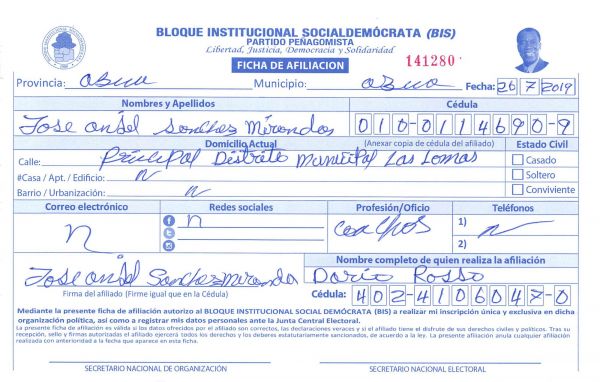 BLOQUE INSTITUCIONAL SOCIALDEMÓCRATA (BIS)
PARTIDO PEÑAGOMISTA
Libertad, Justicia, Democracia y Solidaridad
FICHA DE AFILIACION
141280
Provincia: Azua Municipio: Azua Fecha: 26 / 7 / 2019
Nombres y Apellidos Cédula
Jose Angel Sanchez Mirandos 010-0114690-9
Domicilio Actual (Anexar copia de cédula del afiliado) Estado Civil
Calle: Principal Distrito Municipal Las Lomas Casado
#Casa / Apt. / Edificio: n Soltero
Barrio / Urbanización: n Conviviente
Correo electrónico Redes sociales Profesión/Oficio Teléfonos
n n 1) n
2)
Nombre completo de quien realiza la afiliación
Jose Angel Sanchez Miranda Dario Rosso
Firma del afiliado (Firme igual que en la Cédula) Cédula: 402-4106047-0
Mediante la presente ficha de afiliación autorizo al BLOQUE INSTITUCIONAL SOCIAL DEMÓCRATA (BIS) a realizar mi inscripción única y exclusiva en dicha
organización política, así como a registrar mis datos personales ante la Junta Central Electoral.
La presente ficha de afiliación es válida si los datos ofrecidos por el afiliado son correctos, las declaraciones veraces y si el afiliado tiene el disfrute de sus derechos civiles y políticos. Tras su
recepción, sello y firmas autorizadas el afiliado ejercerá todos los derechos y los deberes estatutariamente sancionados, de acuerdo a la ley. La presente afiliación anula cualquier afiliación
realizada con anterioridad a la fecha que aparece en esta ficha.
SECRETARIO NACIONAL DE ORGANIZACIÓN SECRETARIO NACIONAL ELECTORAL